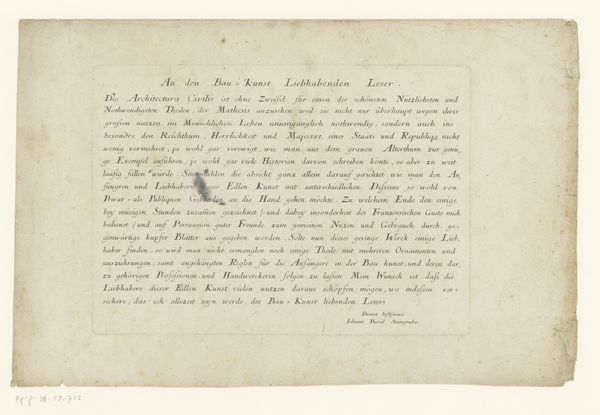 An den Bau=Kunst Liebhabenden Leser.
Die Architectura Civilis ist ohne Zweifel für einen der schönsten Nützlichsten und
Nothwendigsten Theilen, der Mathesis anzusehen, weil sie nicht nur überhaupt wegen ihres
großen nutzen im Menschlichen Leben unumgänglich nothwendig, sondern auch ins
besondre den Reichthum, Herrlichkeit und Majestæt eines Staats und Republiqz nicht
wenig vermehret, ja wohl gar verewigt, wie man aus dem grauen Alterthum zur genü,
ge Exempel anführen, ja wohl gar viele Historien darvon schreiben könte, so aber zu weit
läufig fallen würde. die absicht ganz allein darauf gerichtet, wie man den An,
fängren und Liebhabern dieser Edlen Kunst mit unterschidlichen Desseins so wohl von
Privat=als Publiquen an die Hand gehen mochte. Zu welchem Ende den einige
bey müsigen Stunden zusamen gezeichnet / und dabey insonderheit des Französischen Gusto mich
bedienet / und auf Persuasion guter Freunde zum gemeinen Nuzen und Gebrauch durch ge,
genwärtige kupfer Blätter aus gegeben worden. Solte nun dieses geringe Werck einige Lieb,
haber finden, so wird man nicht ermanglen noch einige Theile mit mehrern Ornamenten und
auszührungen, samt angehängten Reglen für die Anfängere in der Bau kunst, und deren dar,
zu gehörigen Professionen und Handwerckeren folgen zu laßen Mein Wunsch ist daß die
Liebhabere dieser Edlen Kunst vielen nutzen daraus schöpfen mögen, wo indeßen ver=
sichere, das ich allezeit seyn werde, des Bau=Kunst liebenden Lesers
Diener
Johann David Steingruber